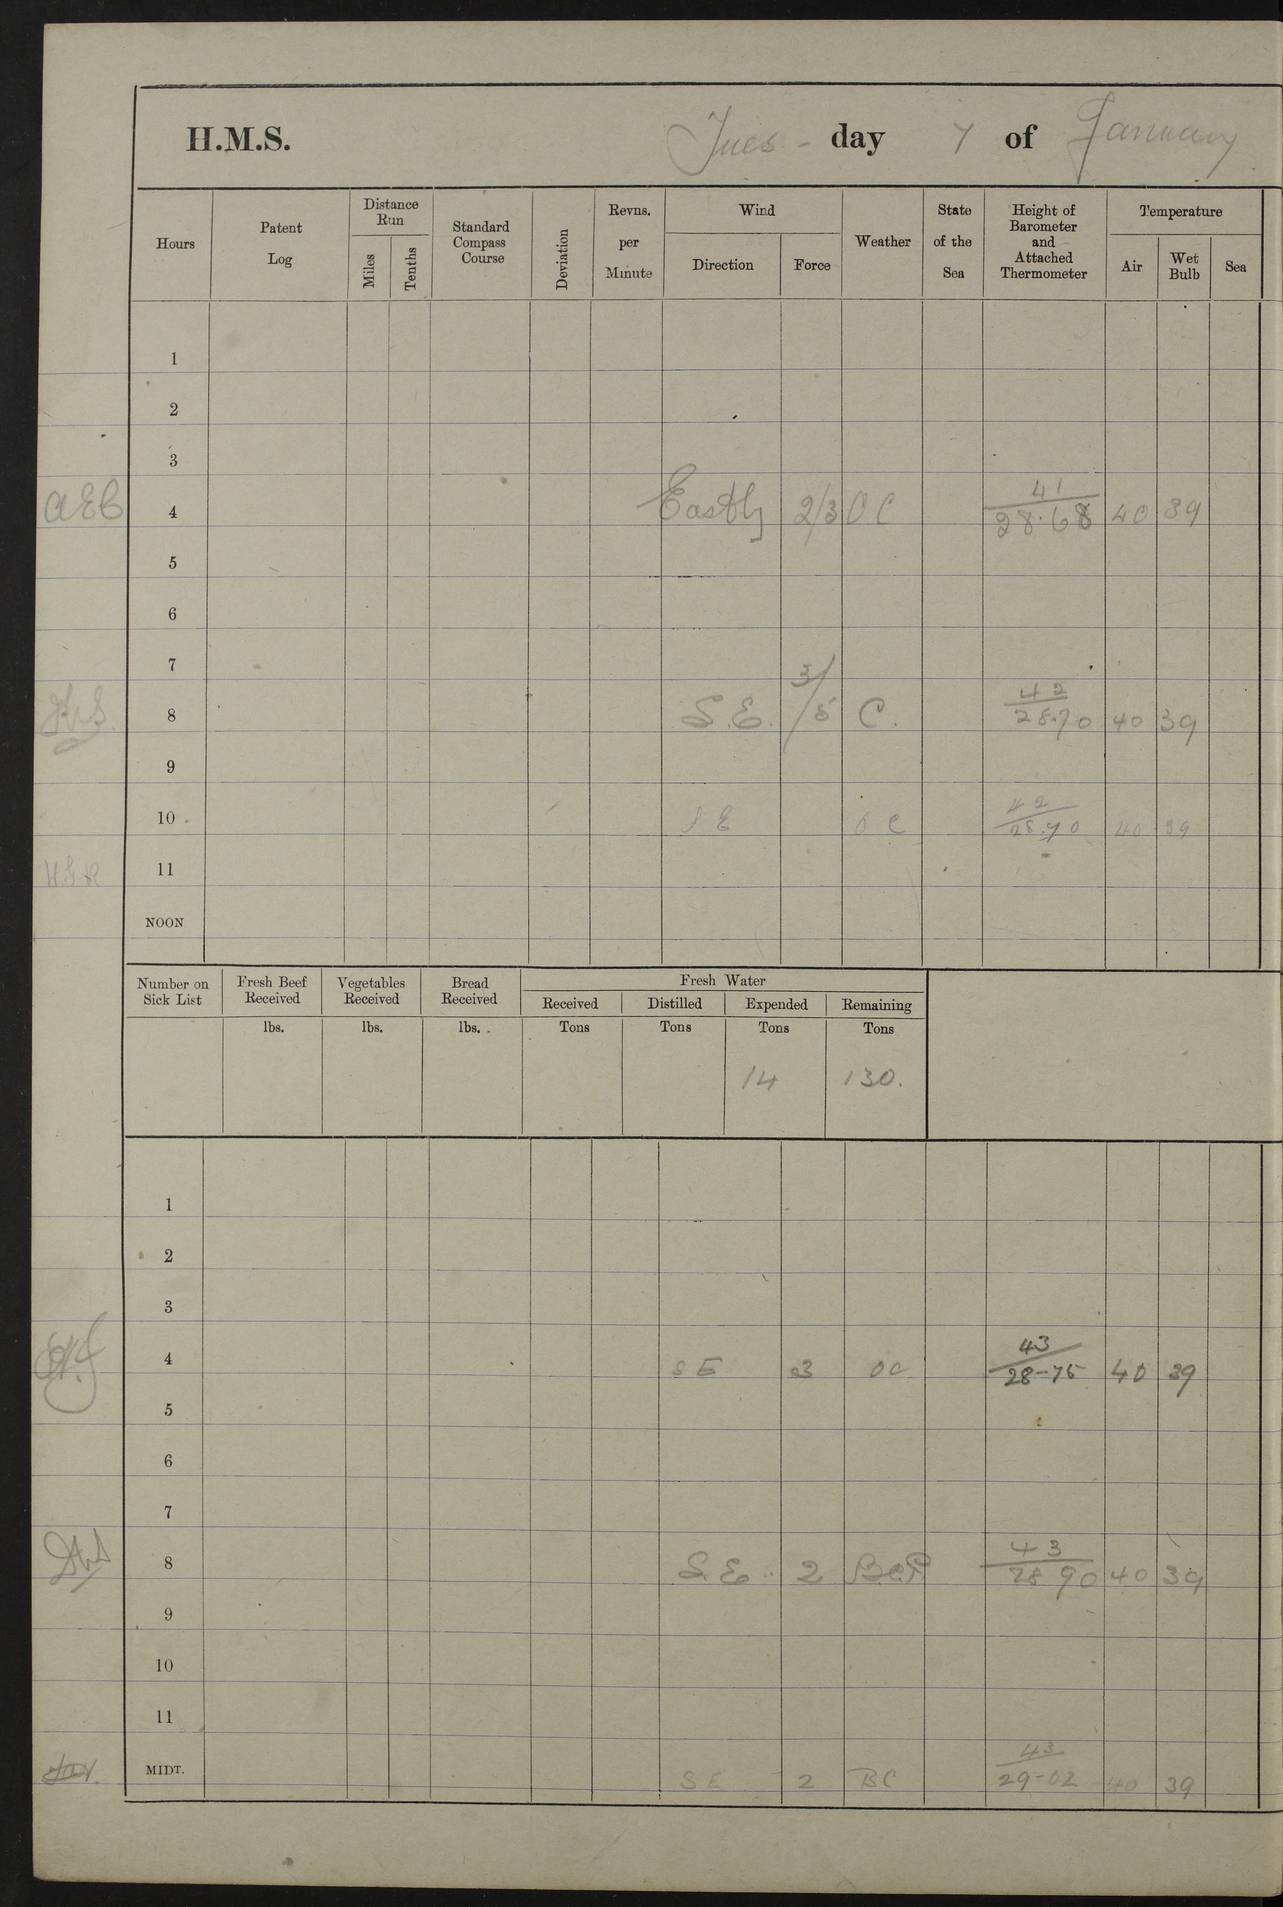 H.M.S. Tues - day 7 of January
Hours Patent Log Distance Run Miles Tenths Standard Compass Course Deviation Revns. per Minute Wind Direction Force Weather State of the Sea Height of Barometer and Attached Thermometer Temperature Air Wet Bulb Sea
1
2
3
AEB 4 Eastly 2/3 OC 41/28.68 40 39
5
6
7
8 S.E. 3/5 C. 42/28.70 40 39
9
10 SE OC 42/28.70 40 39
11
NOON
Number on Sick List Fresh Beef Received Vegetables Received Bread Received Fresh Water
Received Distilled Expended Remaining
lbs. lbs. lbs. Tons Tons Tons Tons
14 130.
1
2
3
4 SE 3 OC 43/28-75 40 39
5
6
7
8 S.E. 2 BcP 43/28 90 40 39
9
10
11
MIDT. SE 2 BC 43/29-02 40 39